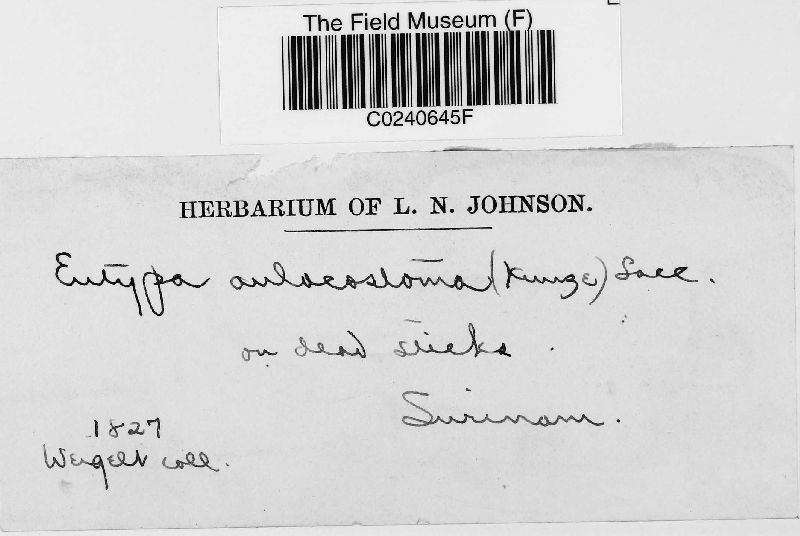 The Field Museum (F)
C0240645F
HERBARIUM OF L. N. JOHNSON.
Eutypa aulacostoma (Kunze) Sacc.
on dead sticks.
Surinam.
1827
Weigelt coll.